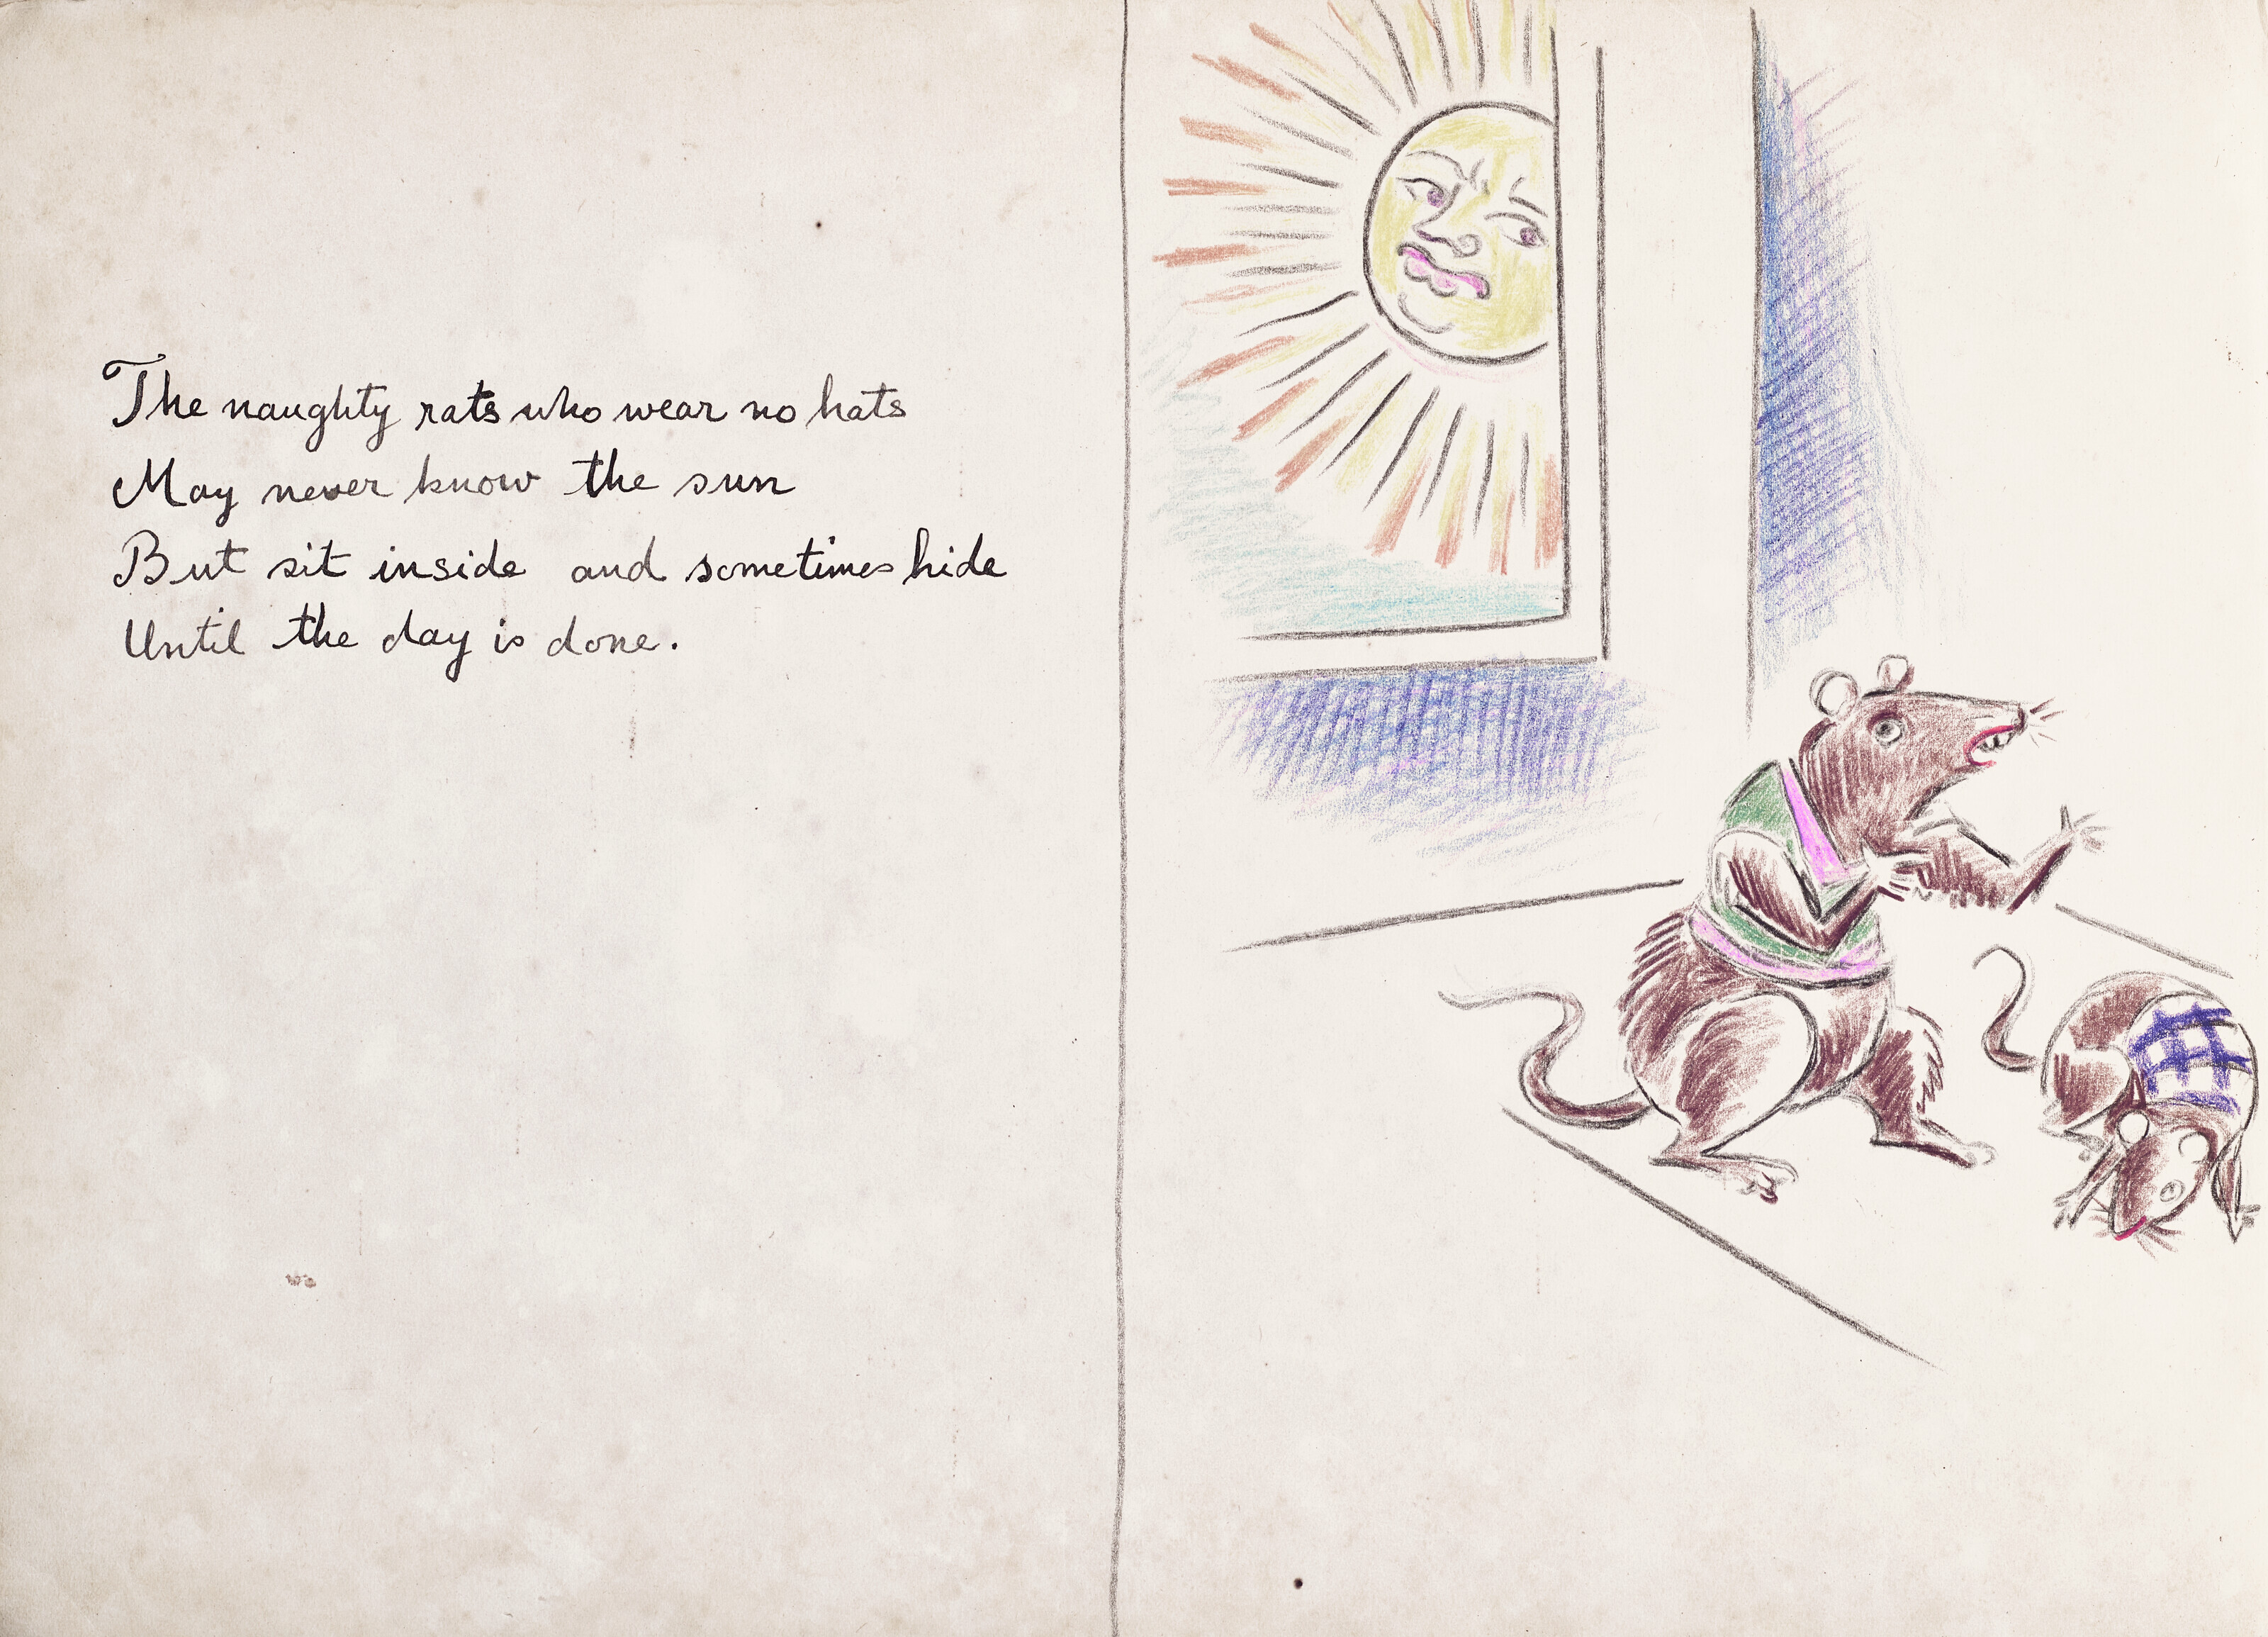 The naughty rats who wear no hats
May never know the sun
But sit inside and sometimes hide
Until the day is done.